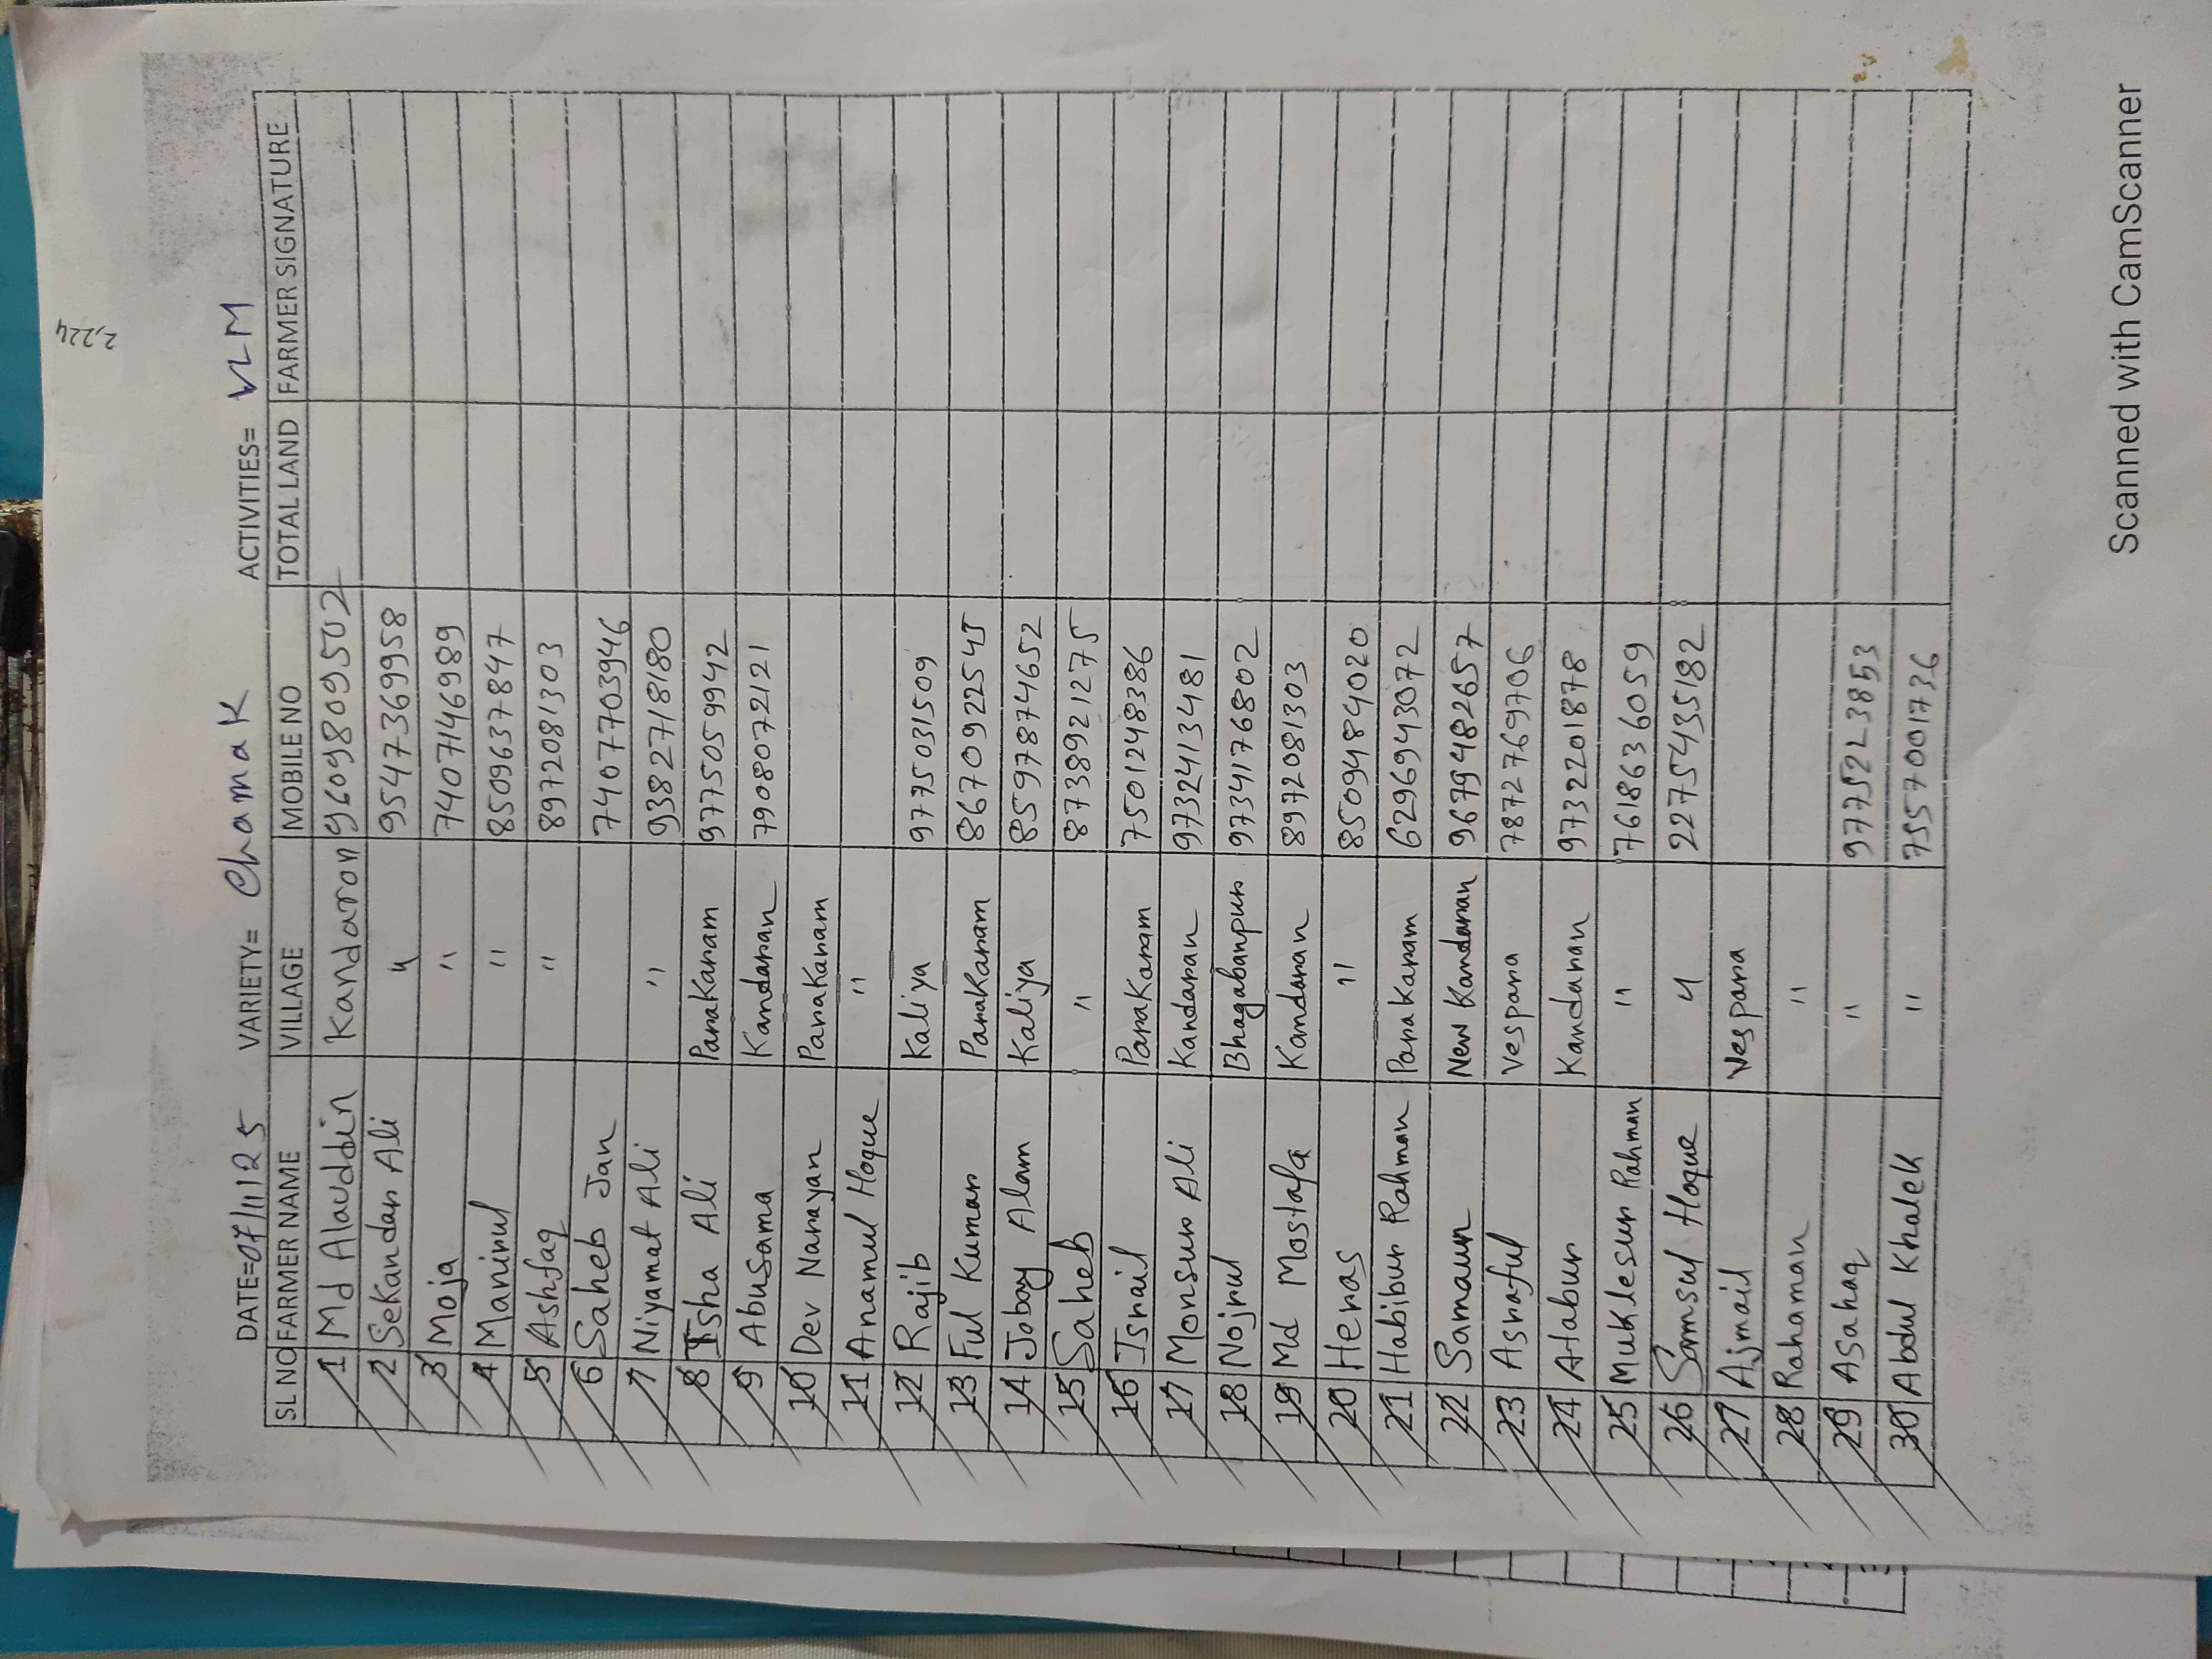 2,224
DATE=07/11/25 VARIETY= Chamak ACTIVITIES= VLM
SL NO FARMER NAME VILLAGE MOBILE NO TOTAL LAND FARMER SIGNATURE
1 Md Alauddin Kandaron 9609809502
2 Sekandar Ali " 9547369958
3 Moja " 7407146989
4 Marinul " 8509637847
5 Ashfaq " 8972081303
6 Saheb Jan 7407703946
7 Niyamat Ali " 9382718180
8 Isha Ali Parakaram 9775059942
9 Abusama Kandaran 7908072121
10 Dev Narayan Parakaram
11 Anamul Hoque "
12 Rajib Kaliya 9775031509
13 Ful Kumar Parakaram 8670922545
14 Jobay Alam Kaliya 8597874652
15 Saheb " 8738921275
16 Israil Parakaram 7501248386
17 Monsur Ali Kandaran 9732413481
18 Nojrul Bhagabanpur 9734176802
19 Md Mostafa Kandaran 8972081303
20 Heras " 8509484020
21 Habibur Rahman Parakaram 6296943072
22 Samaun New Kandaran 9679482657
23 Asraful Vespara 7872769706
24 Atabur Kandaran 9732201878
25 Muklesur Rahman " 7618636059
26 Samsul Hoque " 2275435182
27 Ajmail Vespara
28 Rahaman "
29 Asahaq " 9775223853
30 Abdul Khalek " 7557001736
Scanned with CamScanner